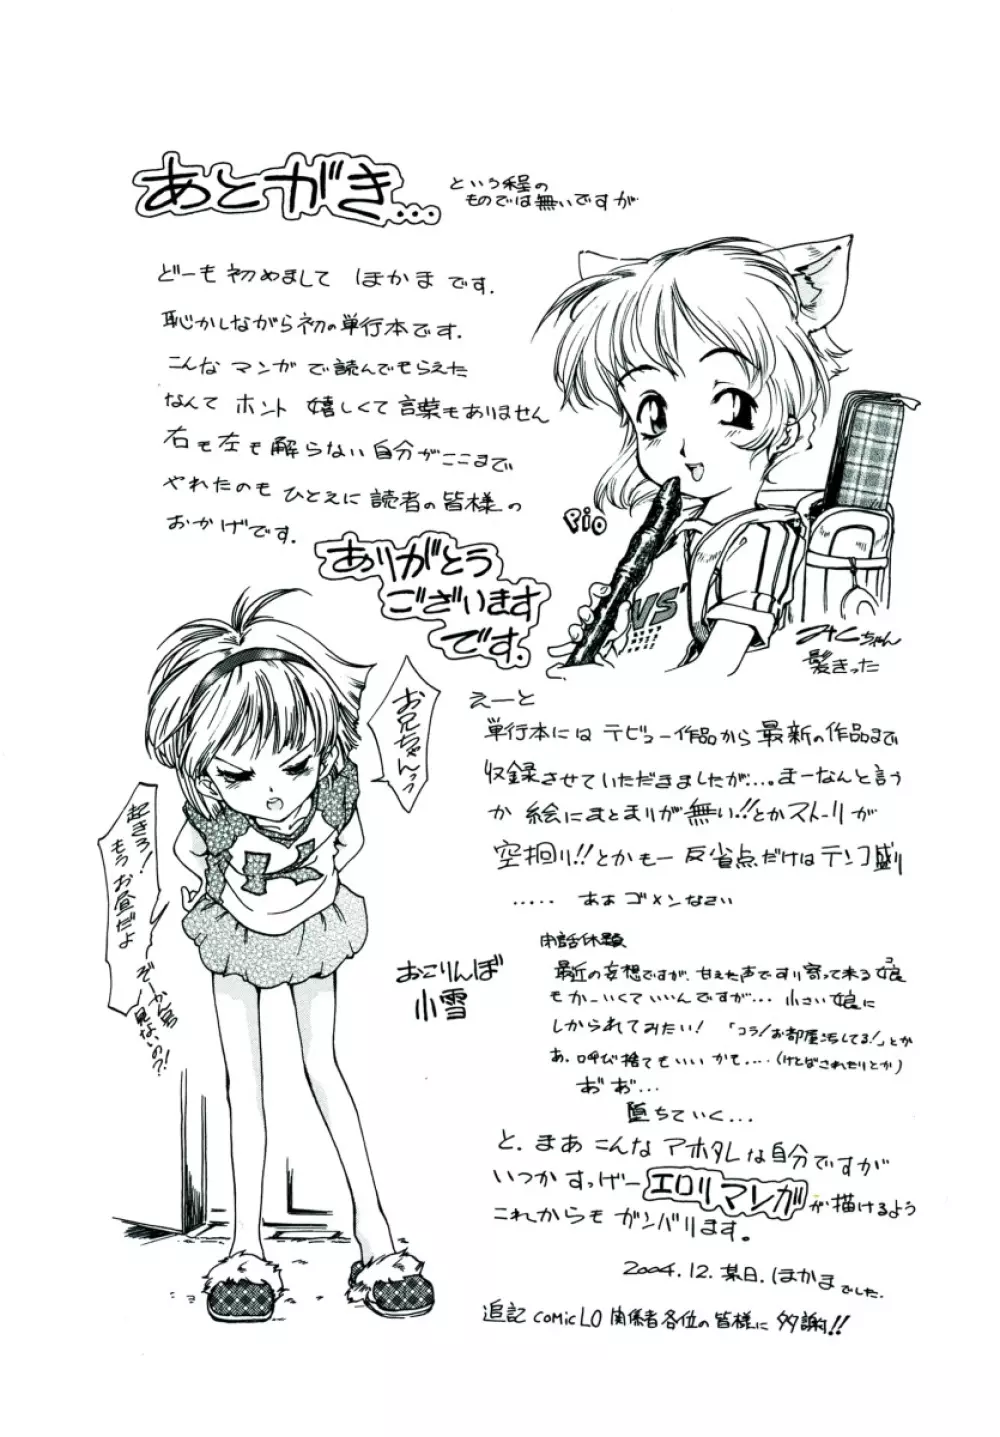 あとがき…
という程の
ものでは無いですが
どーも初めまして ほかまです.
恥かしながら初の単行本です.
こんな マンガ で読んでもらえた
なんて ホント 嬉しくて言葉もありません
右も左も解らない自分がここまで
やれたのも ひとえに 読者の皆様の
おかげです.
ありがとう
ございます
です.
Pio
VS
みくちゃん
髪きった
お兄ちゃんっ
起きろ!
もうお昼だよ
おこりんぼ
小雪
えーと
単行本には デビュー作品から最新の作品まで
収録させていただきましたが…. まーなんと言う
か 絵にまとまりが無い!!とかストーリが
空回り!!とかもー 反省点だけはテンコ盛り
..... ああ ゴメンなさい
閑話休題
最近の妄想ですが、甘えた声ですり寄って来る娘
コ
もかーいくていいんですが… 小さい娘に
しかられてみたい! 「コラ!お部屋汚してる!」とか
あ、呼び捨てもいいかも….(けとばされたりとか)
お゛お゛…
堕ちていく…
と、まあ こんな アホタレな自分ですが
いつか すっげー エロリマンガ が描けるよう
これからも ガンバります。
2004.12.某日. ほかまでした.
追記 comic LO 関係者各位の皆様に 多謝!!